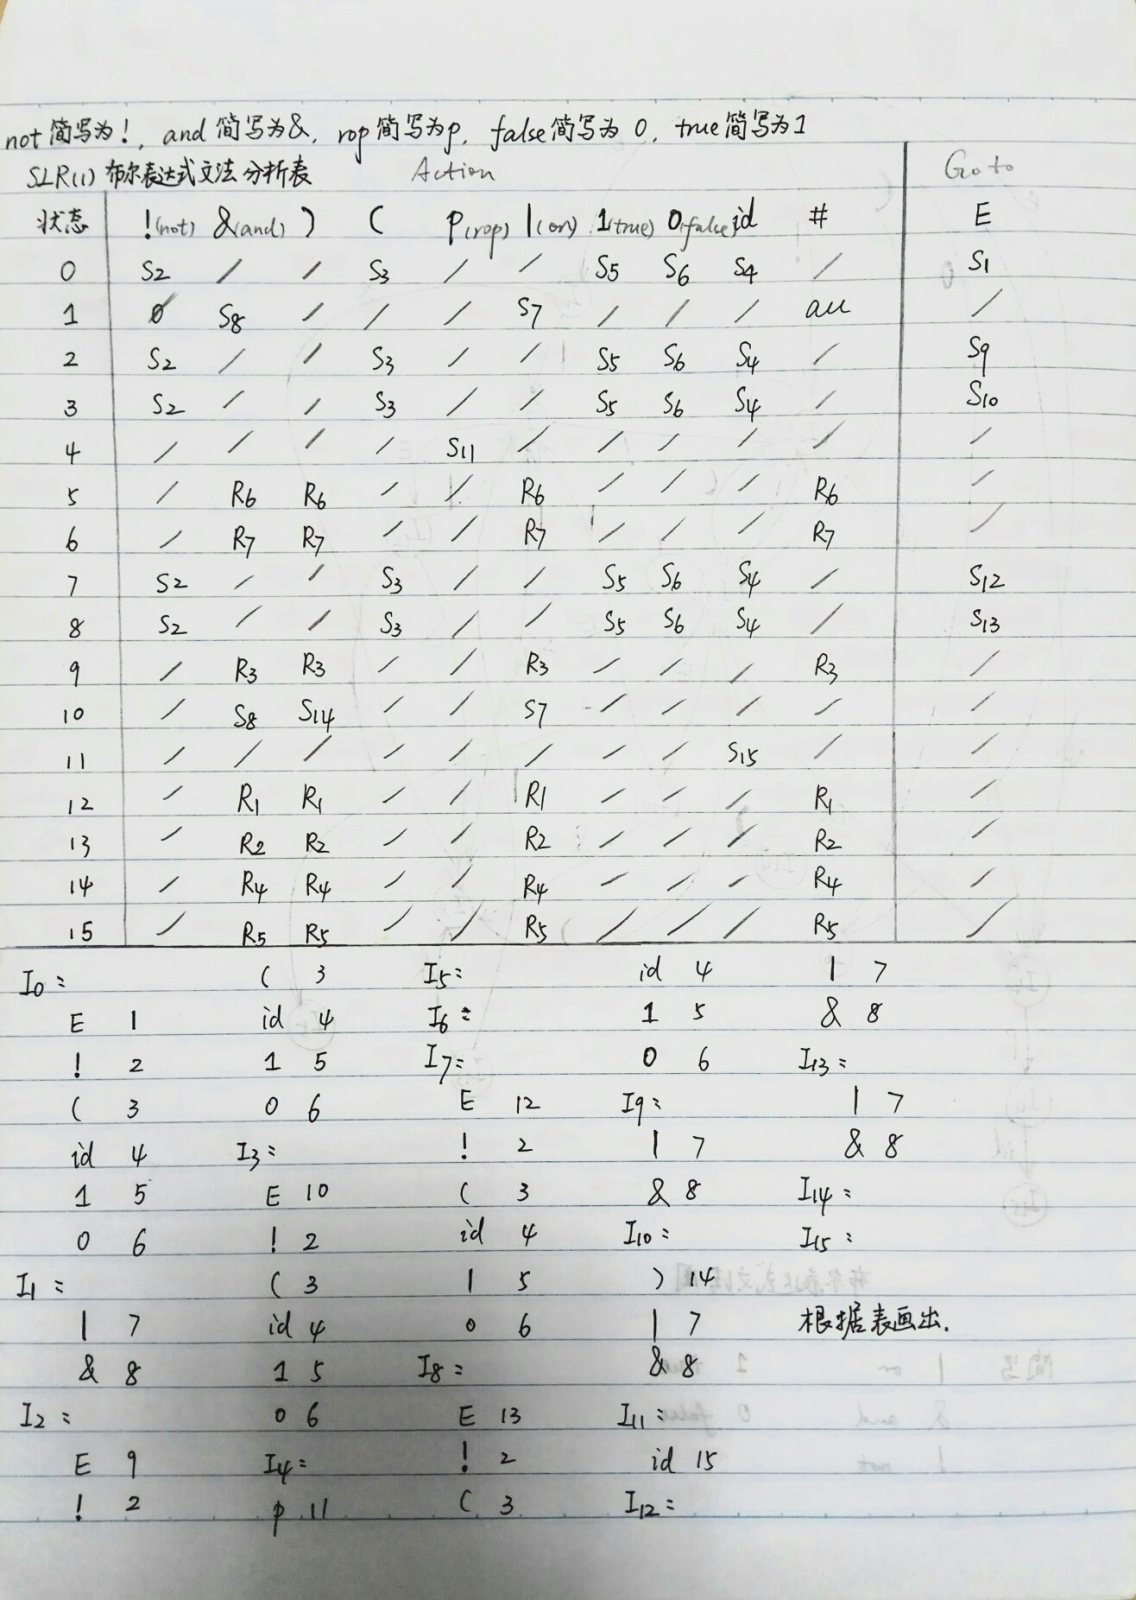 not简写为!, and简写为&, rop简写为p, false简写为0, true简写为1
SLR(1)布尔表达式文法分析表 Action Goto
状态 !(not) &(and) ) ( p(rop) |(or) 1(true) 0(false) id # E
0 S2 / / S3 / / S5 S6 S4 / S1
1 S8 / / / S7 / / / acc /
2 S2 / / S3 / / S5 S6 S4 / S9
3 S2 / / S3 / / S5 S6 S4 / S10
4 / / / / S11 / / / / / /
5 / R6 R6 / / R6 / / / R6 /
6 / R7 R7 / / R7 / / / R7 /
7 S2 / / S3 / / S5 S6 S4 / S12
8 S2 / / S3 / / S5 S6 S4 / S13
9 / R3 R3 / / R3 / / / R3 /
10 / S8 S14 / / S7 / / / / /
11 / / / / / / / / S15 / /
12 / R1 R1 / / R1 / / / R1 /
13 / R2 R2 / / R2 / / / R2 /
14 / R4 R4 / / R4 / / / R4 /
15 / R5 R5 / / R5 / / / R5 /
I0:
E 1
! 2
( 3
id 4
1 5
0 6
I1:
| 7
& 8
I2:
E 9
! 2
( 3
id 4
1 5
0 6
I3:
E 10
! 2
( 3
id 4
1 5
0 6
I4:
p 11
I5:
I6:
I7:
E 12
! 2
( 3
id 4
1 5
0 6
I8:
E 13
! 2
( 3
id 4
1 5
0 6
I9:
| 7
& 8
I10:
) 14
| 7
& 8
I11:
id 15
I12:
| 7
& 8
I13:
| 7
& 8
I14:
I15:
根据表画出.